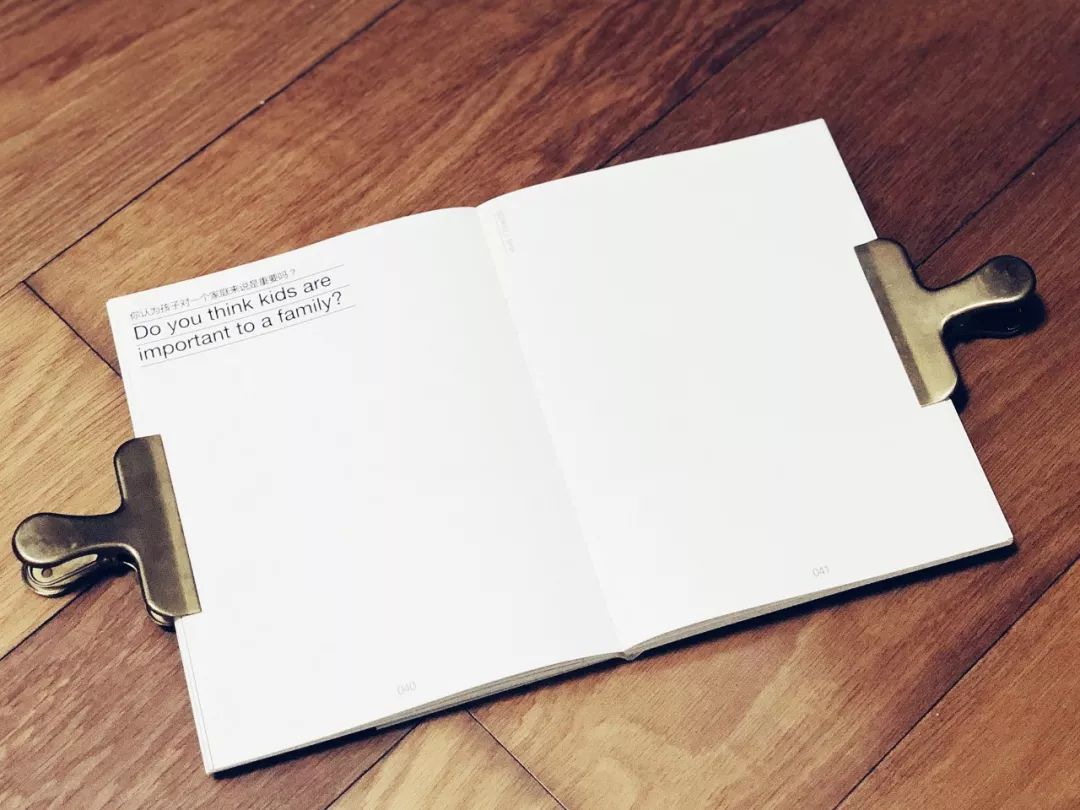 你认为孩子对一个家庭来说是重要吗？
Do you think kids are
important to a family?
040
041